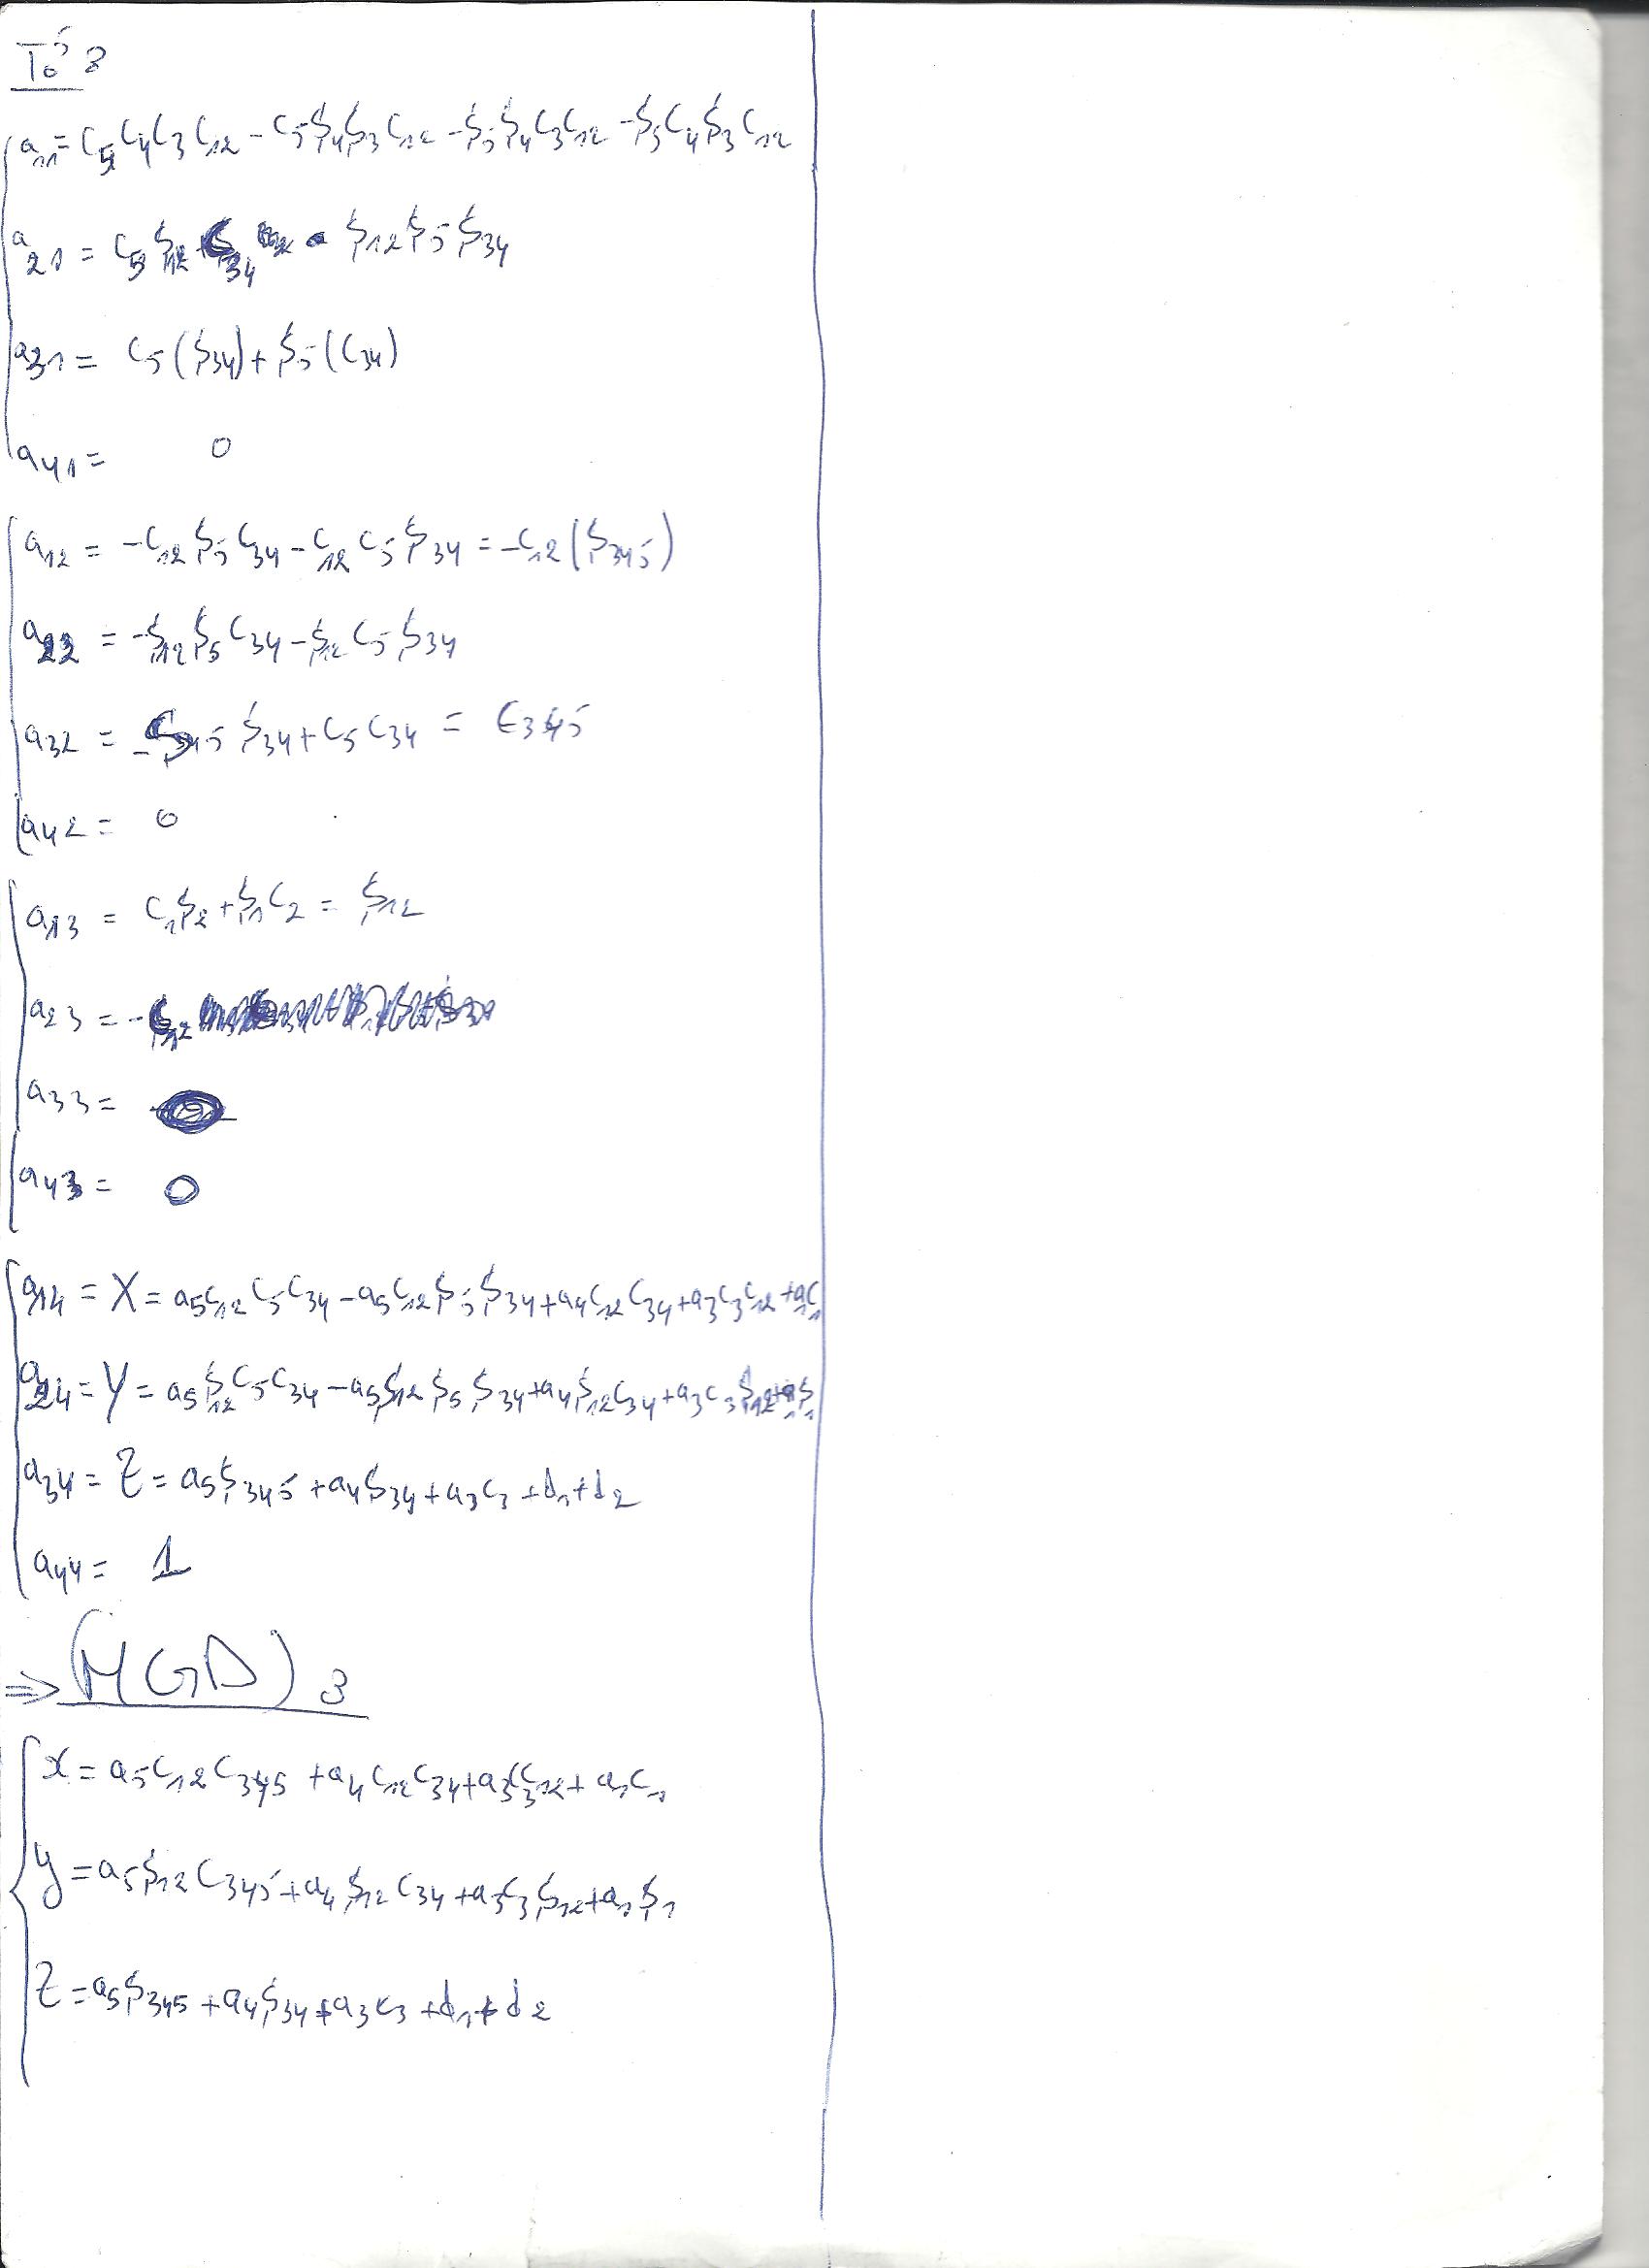 T₀⁵ :
a₁₁ = C₅C₄C₃C₁₂ - C₅S₄S₃C₁₂ - S₅S₄C₃C₁₂ - S₅C₄S₃C₁₂
a₂₁ = C₅S₁₂C₃₄ - S₁₂S₅S₃₄
a₃₁ = C₅(S₃₄) + S₅(C₃₄)
a₄₁ = 0
a₁₂ = -C₁₂S₅C₃₄ - C₁₂C₅S₃₄ = -C₁₂(S₃₄₅)
a₂₂ = -S₁₂S₅C₃₄ - S₁₂C₅S₃₄
a₃₂ = -S₅ S₃₄ + C₅C₃₄ = C₃₄₅
a₄₂ = 0
a₁₃ = C₁S₂ + S₁C₂ = S₁₂
a₂₃ = -C₁₂
a₃₃ =
a₄₃ = 0
a₁₄ = X = a₅C₁₂C₅C₃₄ - a₅C₁₂S₅S₃₄ + a₄C₁₂C₃₄ + a₃C₃C₁₂ + a₁C₁
a₂₄ = Y = a₅S₁₂C₅C₃₄ - a₅S₁₂S₅S₃₄ + a₄S₁₂C₃₄ + a₃C₃S₁₂ + a₁S₁
a₃₄ = Z = a₅S₃₄₅ + a₄S₃₄ + a₃C₃ + d₁ + d₂
a₄₄ = 1
⇒ (MGD) :
x = a₅C₁₂C₃₄₅ + a₄C₁₂C₃₄ + a₃C₃C₁₂ + a₁C₁
y = a₅S₁₂C₃₄₅ + a₄S₁₂C₃₄ + a₃C₃S₁₂ + a₁S₁
Z = a₅S₃₄₅ + a₄S₃₄ + a₃C₃ + d₁ + d₂